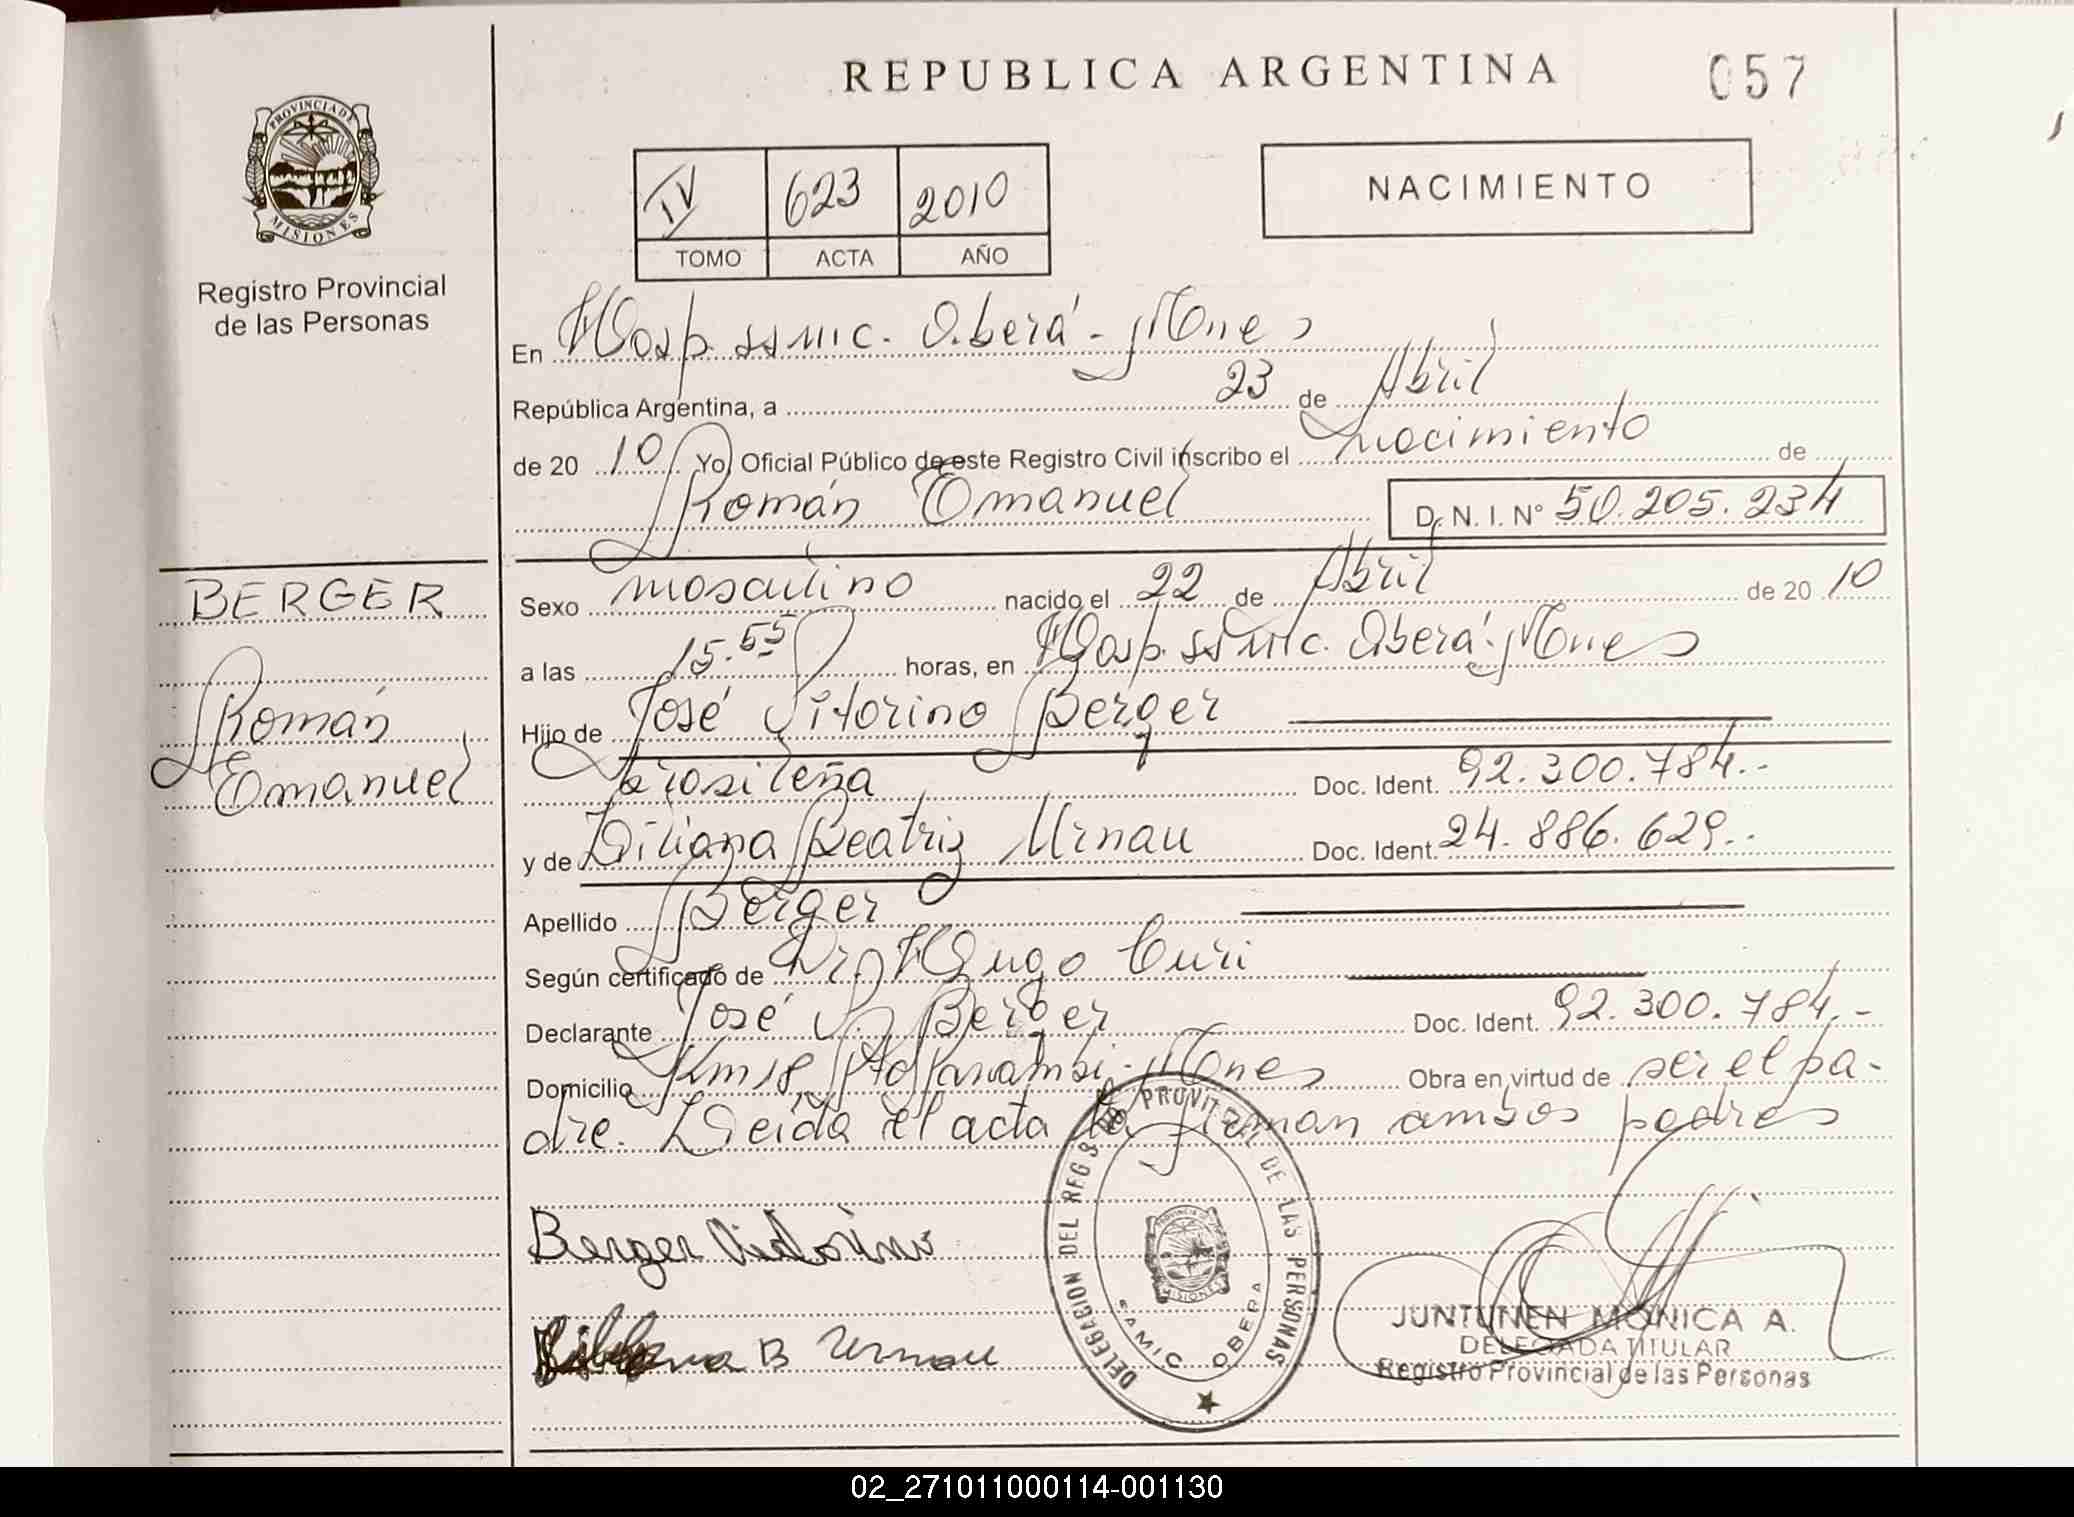 REPUBLICA ARGENTINA
057
PROVINCIA DE
MISIONES
Registro Provincial
de las Personas
IV 623 2010
TOMO ACTA AÑO
NACIMIENTO
En Hosp. SAMIC. Oberá - Mnes
República Argentina, a 23 de Abril
de 20 10 Yo, Oficial Público de este Registro Civil inscribo el nacimiento de
Román Emanuel D. N. I. N° 50.205.234
BERGER
Román
Emanuel
Sexo masculino nacido el 22 de Abril de 20 10
a las 15.55 horas, en Hosp. SAMIC. Oberá - Mnes
Hijo de José Vitorino Berger
brasileña Doc. Ident. 92.300.784.-
y de Liliana Beatriz Urnau Doc. Ident. 24.886.629.-
Apellido Berger
Según certificado de Dr. Hugo Curi
Declarante José V. Berger Doc. Ident. 92.300.784.-
Domicilio Km 18, Pto Panambí - Mnes Obra en virtud de ser el pa-
dre. Leída el acta la firman ambos padres
Berger Vidorino
Liliana B Urnau
DELEGACION DEL REG PROVINCIAL DE LAS PERSONAS
SAMIC OBERA
PROVINCIA DE
MISIONES
JUNTUNEN MONICA A.
DELEGADA TITULAR
Registro Provincial de las Personas
02_271011000114-001130